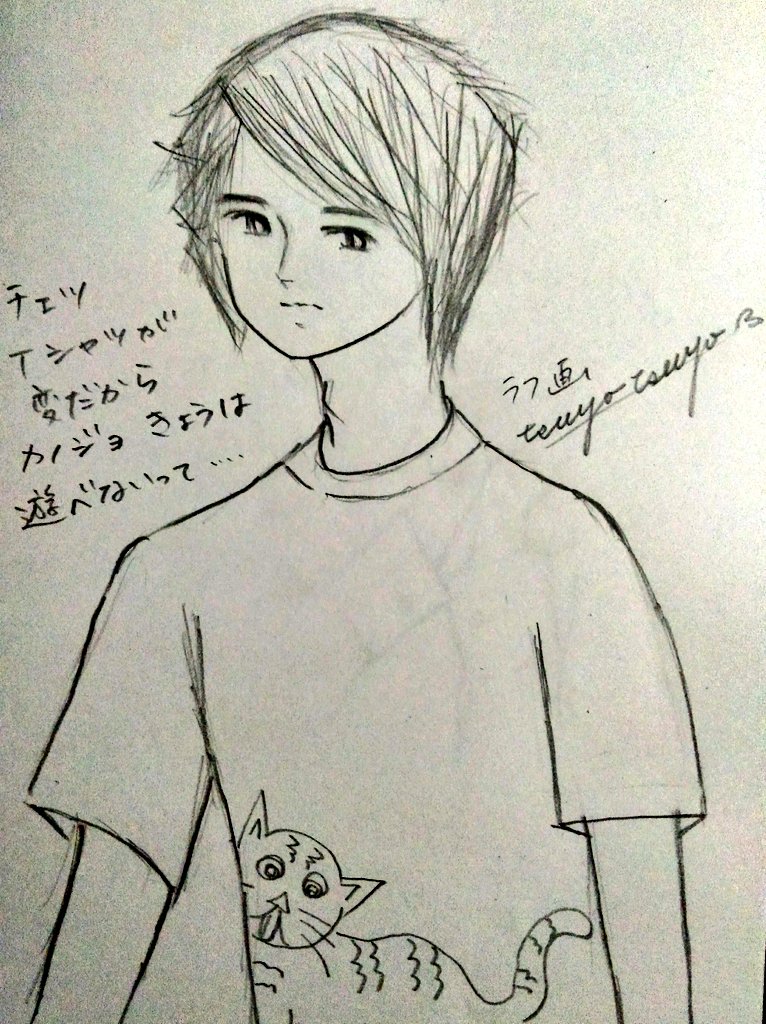 チェツ
Tシャツが
変だから
カノジョ きょうは
遊べないって....
ラフ画
tsuyotsuyoB